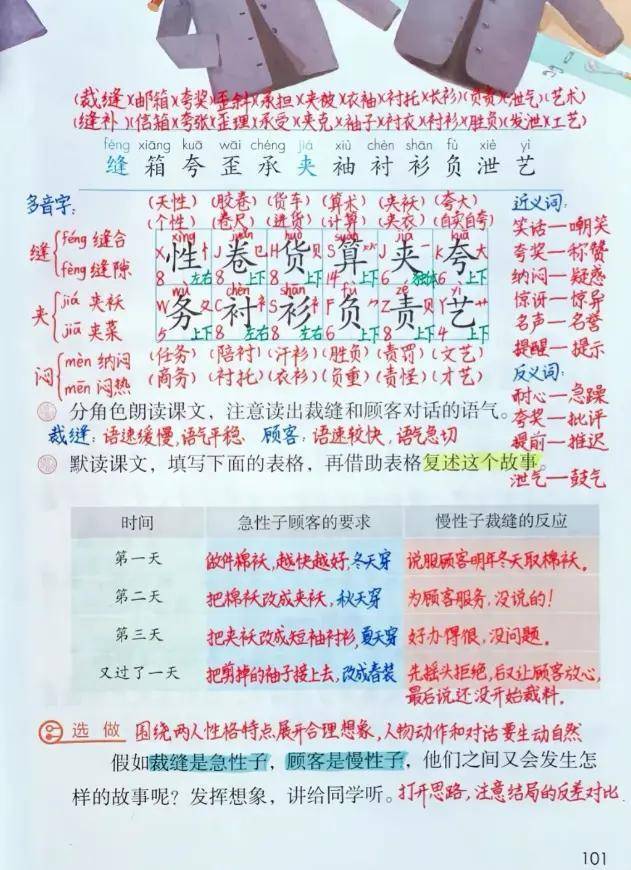 (裁缝)(邮箱)(夸奖)(歪斜)(承担)(夹被)(衣袖)(衬托)(长衫)(负责)(泄气)(艺术)
(缝补)(信箱)(夸张)(歪理)(承受)(夹克)(袖子)(衬衣)(衬衫)(胜负)(发泄)(工艺)
féng xiāng kuā wāi chéng jiá xiù chèn shān fù xiè yì
缝 箱 夸 歪 承 夹 袖 衬 衫 负 泄 艺
多音字:
缝 féng 缝合
fèng 缝隙
夹 jiá 夹袄
jiā 夹菜
闷 mèn 纳闷
mēn 闷热
(天性)(胶卷)(货车)(算术)(夹袄)(夸大)
(个性)(卷尺)(进货)(计算)(夹衣)(自卖自夸)
xìng juàn huò suàn jiá kuā
性 卷 货 算 夹 夸
8 左右 8 上下 8 上下 14 上下 6 独体 6 上下
wù chèn shān fù zé yì
务 衬 衫 负 责 艺
5 上下 8 左右 8 左右 6 上下 8 上下 4 上下
(任务)(陪衬)(汗衫)(胜负)(责罚)(文艺)
(商务)(衬托)(衣衫)(负重)(责怪)(才艺)
近义词:
笑话—嘲笑
夸奖—称赞
纳闷—疑惑
惊讶—惊异
名声—名誉
提醒—提示
反义词:
耐心—急躁
夸奖—批评
提前—推迟
泄气—鼓气
分角色朗读课文，注意读出裁缝和顾客对话的语气。
裁缝:语速缓慢,语气平稳 顾客:语速较快,语气急切
默读课文，填写下面的表格，再借助表格复述这个故事。
时间 急性子顾客的要求 慢性子裁缝的反应
第一天 做件棉袄,越快越好,冬天穿 说服顾客明年冬天取棉袄。
第二天 把棉袄改成夹袄,秋天穿 为顾客服务,没说的!
第三天 把夹袄改成短袖衬衫,夏天穿 好办得很,没问题。
又过了一天 把剪掉的袖子接上去,改成春装 先摇头拒绝,后又让顾客放心,
最后说还没开始裁料。
选做 围绕两人性格特点展开合理想象,人物动作和对话要生动自然
假如裁缝是急性子，顾客是慢性子，他们之间又会发生怎
样的故事呢？发挥想象，讲给同学听。打开思路,注意结局的反差对比
101